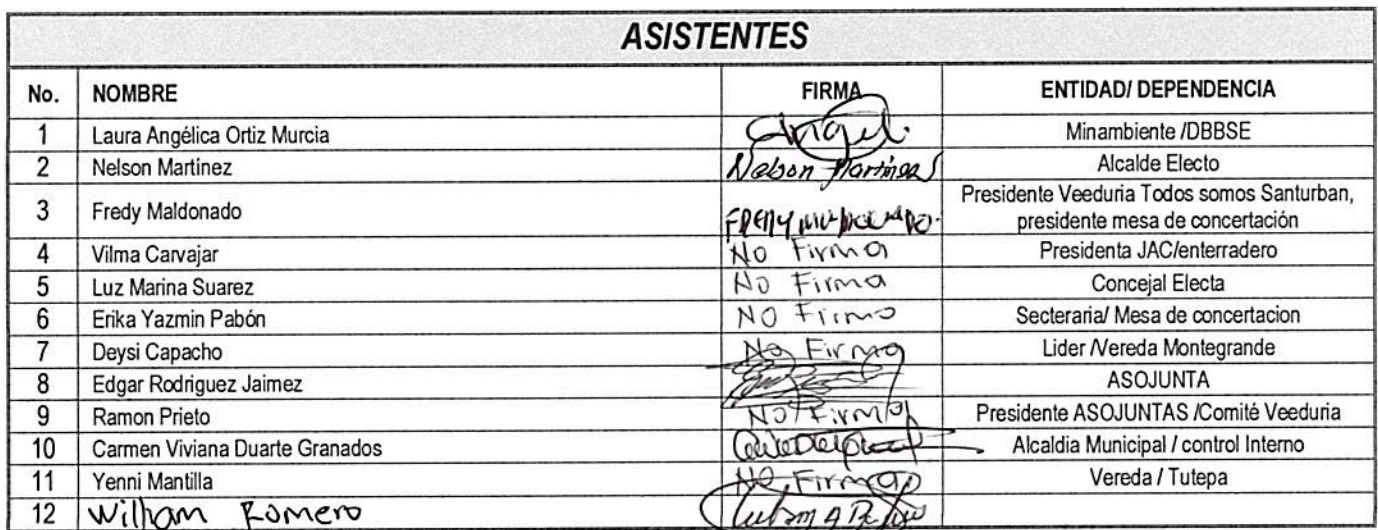 ASISTENTES
No. NOMBRE FIRMA ENTIDAD/ DEPENDENCIA
1 Laura Angélica Ortiz Murcia Angel. Minambiente /DBBSE
2 Nelson Martínez Nelson Martínez Alcalde Electo
3 Fredy Maldonado FREDY MALDONADO. Presidente Veeduria Todos somos Santurban,
presidente mesa de concertación
4 Vilma Carvajar No Firma Presidenta JAC/enterradero
5 Luz Marina Suarez No Firma Concejal Electa
6 Erika Yazmin Pabón NO Firma Secteraria/ Mesa de concertacion
7 Deysi Capacho No Firma Lider /Vereda Montegrande
8 Edgar Rodriguez Jaimez ASOJUNTA
9 Ramon Prieto NO Firma Presidente ASOJUNTAS /Comité Veeduria
10 Carmen Viviana Duarte Granados Alcaldia Municipal / control Interno
11 Yenni Mantilla NO Firma Vereda / Tutepa
12 William Romero